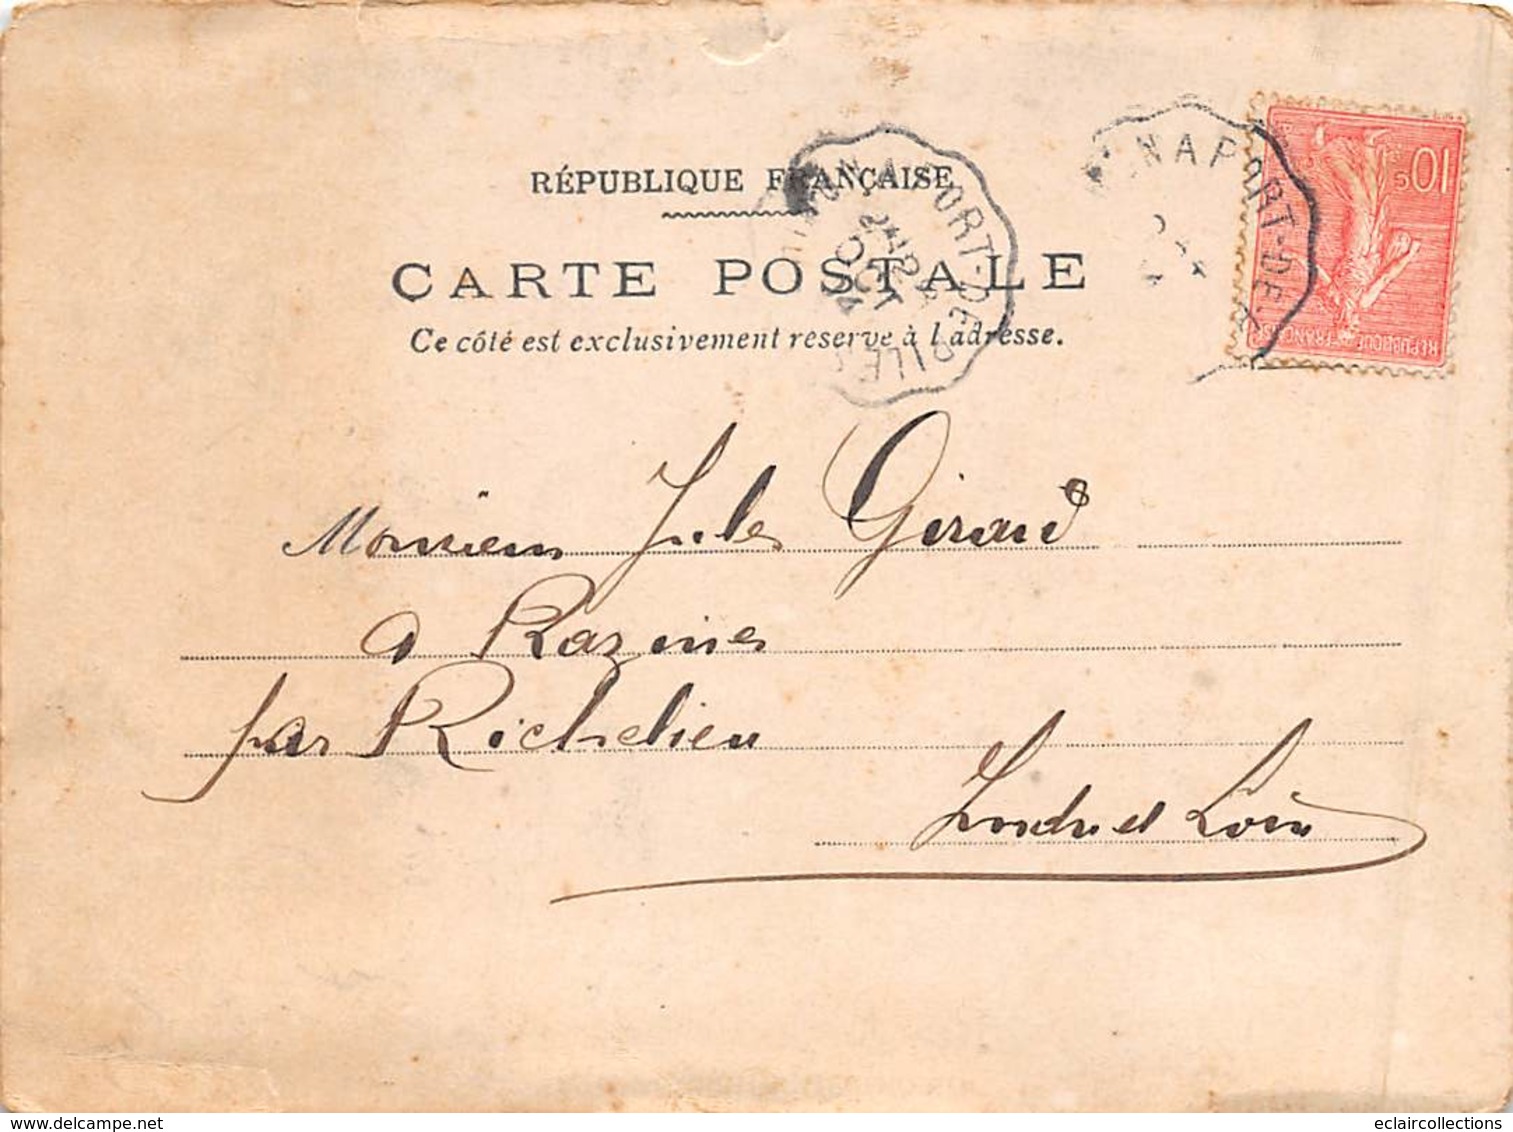 RÉPUBLIQUE FRANÇAISE
CARTE POSTALE
Ce côté est exclusivement réservé à l'adresse.
NAPORT-DE
A PORT-DE PILES
OCT
10c
REPUBLIQUE FRANÇAISE
Monsieur Jules Giraud
à Razines
par Richelieu
Indre et Loire
eclaircollections